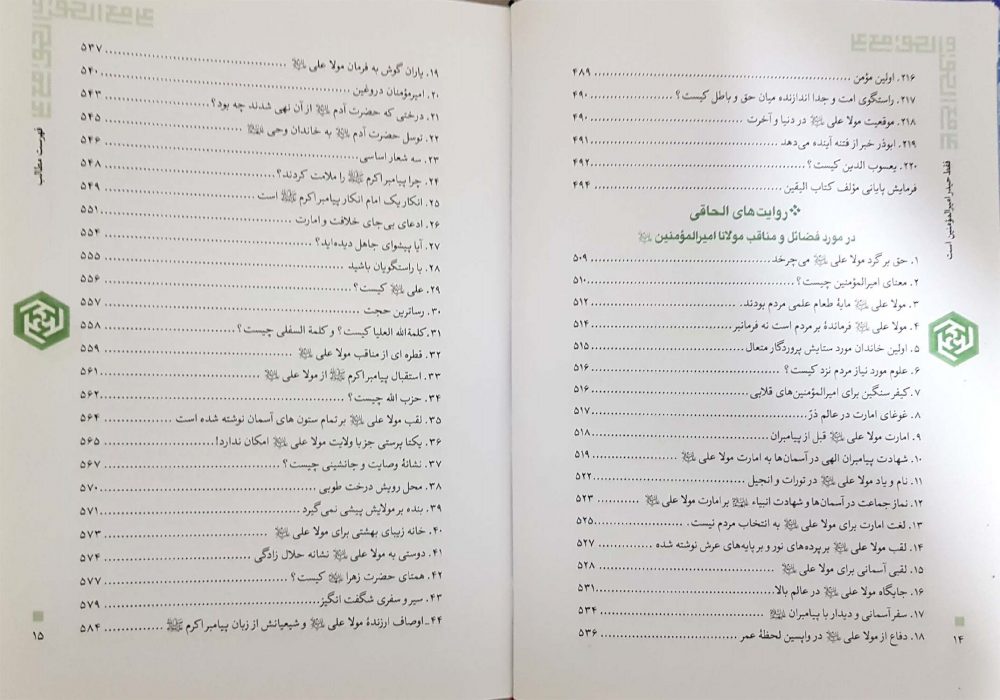 ۲۱۶. اولین مؤمن ........ ۴۸۹
۲۱۷. راستگوی امت و جدا اندازنده میان حق و باطل کیست؟ ........ ۴۹۰
۲۱۸. موقعیت مولا علی ﷷ در دنیا و آخرت ........ ۴۹۰
۲۱۹. ابوذر خبر از فتنه آینده می‌دهد ........ ۴۹۱
۲۲۰. یعسوب الدین کیست؟ ........ ۴۹۲
فرمایش پایانی مؤلف کتاب الیقین ........ ۴۹۴
❖ روایت‌های الحاقی
در مورد فضائل و مناقب مولانا امیرالمؤمنین
۱. حق بر گرد مولا علی می‌چرخد ........ ۵۰۹
۲. معنای امیرالمؤمنین چیست؟ ........ ۵۱۰
۳. مولا علی مایۀ طعام علمی مردم بودند ........ ۵۱۲
۴. مولا علی فرماندۀ بر مردم است نه فرمانبر ........ ۵۱۴
۵. اولین خاندان مورد ستایش پروردگار متعال ........ ۵۱۵
۶. علوم مورد نیاز مردم نزد کیست؟ ........ ۵۱۶
۷. کیفر سنگین برای امیرالمؤمنین‌های قلابی ........ ۵۱۶
۸. غوغای امارت در عالم ذرّ ........ ۵۱۷
۹. امارت مولا علی قبل از پیامبران ........ ۵۱۸
۱۰. شهادت پیامبران الهی در آسمان‌ها به امارت مولا علی ........ ۵۱۹
۱۱. نام و یاد مولا علی در تورات و انجیل ........ ۵۲۲
۱۲. نماز جماعت در آسمان‌ها و شهادت انبیاء بر امارت مولا علی ........ ۵۲۳
۱۳. لغت امارت برای مولا علی به انتخاب مردم نیست ........ ۵۲۵
۱۴. لقب مولا علی بر پرده‌های نور و بر پایه‌های عرش نوشته شده ........ ۵۲۷
۱۵. لقبی آسمانی برای مولا علی ........ ۵۲۸
۱۶. جایگاه مولا علی در عالم بالا ........ ۵۳۱
۱۷. سفر آسمانی و دیدار با پیامبران ........ ۵۳۴
۱۸. دفاع از مولا علی در واپسین لحظۀ عمر ........ ۵۳۶
فقط حیدر امیرالمؤمنین است
۱۴
۱۹. یاران گوش به فرمان مولا علی ........ ۵۳۷
۲۰. امیرمؤمنان دروغین ........ ۵۴۰
۲۱. درختی که حضرت آدم از آن نهی شدند چه بود؟ ........ ۵۴۳
۲۲. توسل حضرت آدم به خاندان وحی ........ ۵۴۵
۲۳. سه شعار اساسی ........ ۵۴۶
۲۴. چرا پیامبر اکرم را ملامت کردند؟ ........ ۵۴۸
۲۵. انکار یک امام انکار پیامبر اکرم است ........ ۵۴۹
۲۶. ادعای بی جای خلافت و امارت ........ ۵۵۱
۲۷. آیا پیشوای جاهل دیده‌اید؟ ........ ۵۵۴
۲۸. با راستگویان باشید ........ ۵۵۵
۲۹. علی کیست؟ ........ ۵۵۶
۳۰. رساترین حجت ........ ۵۵۷
۳۱. کلمة الله العلیا کیست؟ و کلمة السفلی چیست؟ ........ ۵۵۸
۳۲. قطره ای از مناقب مولا علی ........ ۵۵۹
۳۳. استقبال پیامبر اکرم از مولا علی ........ ۵۶۱
۳۴. حزب الله چیست؟ ........ ۵۶۲
۳۵. لقب مولا علی بر تمام ستون های آسمان نوشته شده است ........ ۵۶۴
۳۶. یکتا پرستی جز با ولایت مولا علی امکان ندارد! ........ ۵۶۵
۳۷. نشانۀ وصایت و جانشینی چیست؟ ........ ۵۶۷
۳۸. محل رویش درخت طوبی ........ ۵۷۰
۳۹. بنده بر مولایش پیشی نمی‌گیرد ........ ۵۷۱
۴۰. خانه زیبای بهشتی برای مولا علی ........ ۵۷۳
۴۱. دوستی به مولا علی نشانه حلال زادگی ........ ۵۷۴
۴۲. همتای حضرت زهرا کیست؟ ........ ۵۷۷
۴۳. سیر و سفری شگفت انگیز ........ ۵۷۹
۴۴. اوصاف ارزندۀ مولا علی و شیعیانش از زبان پیامبر اکرم ........ ۵۸۴
فهرست مطالب
۱۵